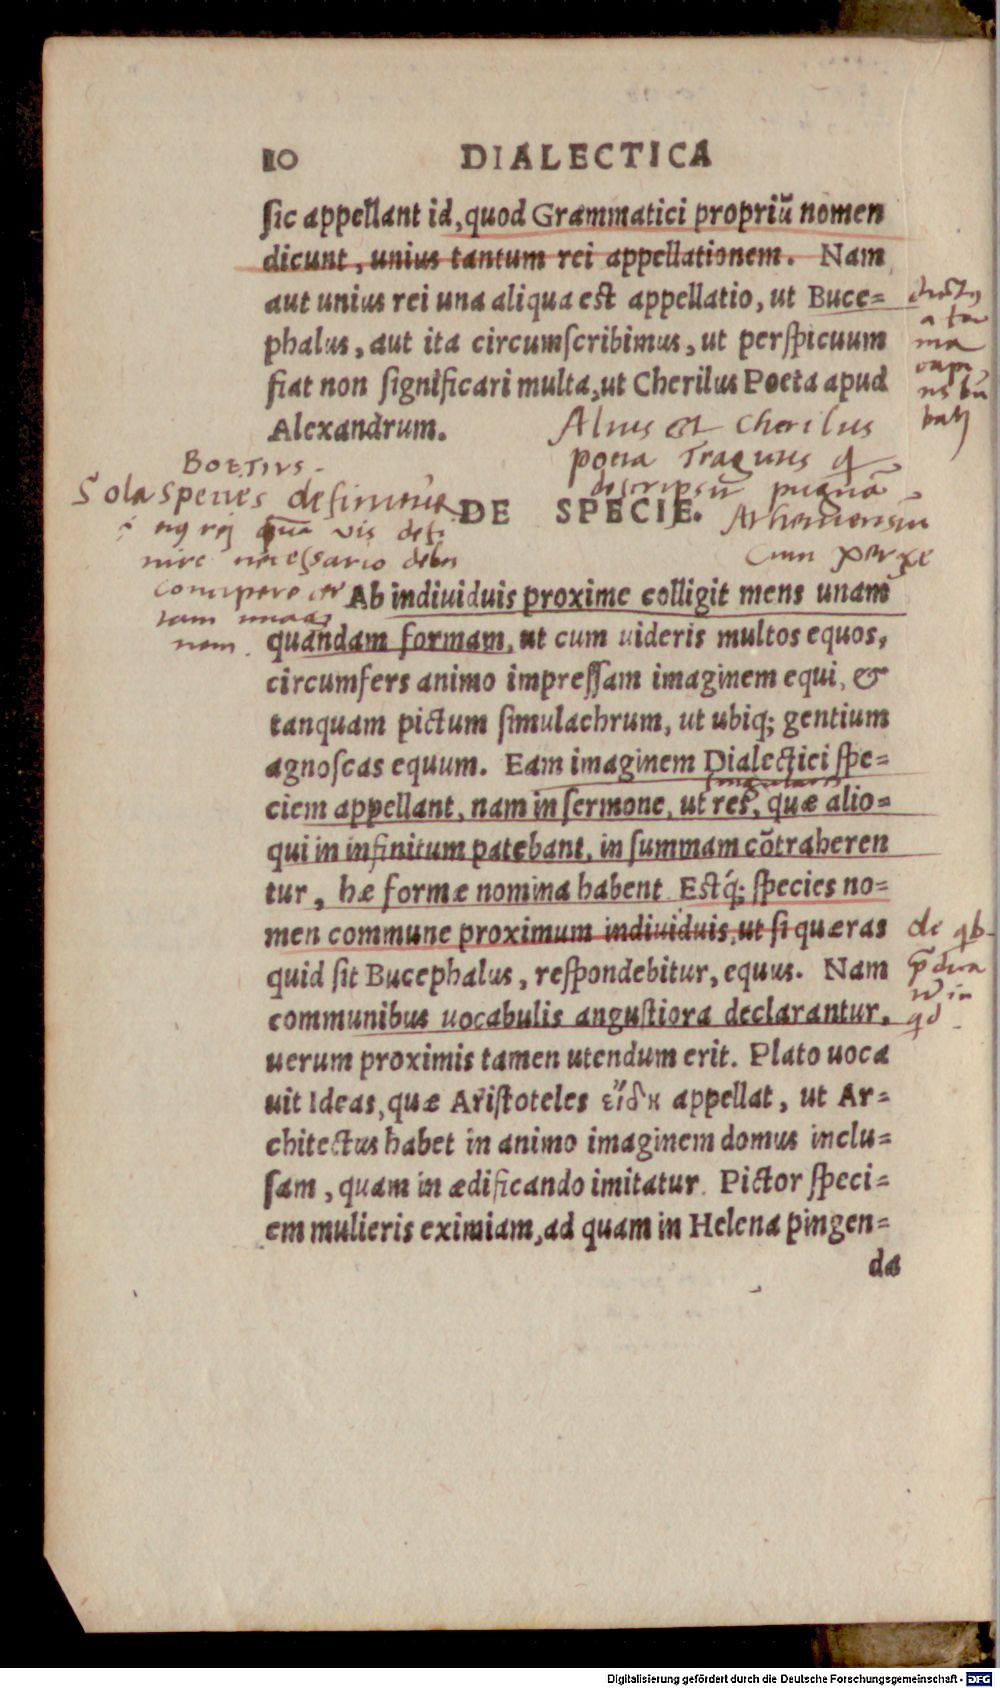 10 DIALECTICA
ſic appellant id, quod Grammatici propriũ nomen
dicunt, unius tantum rei appellationem. Nam
aut unius rei una aliqua est appellatio, ut Buce=
phalus, aut ita circumſcribimus, ut perſpicuum
fiat non ſignificari multa, ut Cherilus Poeta apud
Alexandrum.
Alius est Cherilus
poeta Tragicus q
descripsit pugnã
Atheniensiũ
cum Xerxe
BOETIVS.
Sola species definitur
DE SPECIE.
Ab indiuiduis proxime colligit mens unam
quandam formam, ut cum uideris multos equos,
circumfers animo impreſſam imaginem equi, &
tanquam pictum ſimulachrum, ut ubiq; gentium
agnoſcas equum. Eam imaginem Dialectici ſpe=
singularis
ciem appellant, nam in ſermone, ut res, quæ alio=
qui in infinitum patebant, in ſummam cõtraheren
tur, hæ formæ nomina habent. Estq́; ſpecies no=
men commune proximum indiuiduis, ut ſi quæras
quid ſit Bucephalus, reſpondebitur, equus. Nam
communibus uocabulis anguſtiora declarantur,
uerum proximis tamen utendum erit. Plato uoca
uit Ideas, quæ Ariſtoteles εἴδη appellat, ut Ar=
chitectus habet in animo imaginem domus inclu=
ſam, quam in ædificando imitatur. Pictor ſpeci=
em mulieris eximiam, ad quam in Helena pingen=
da
Digitalisierung gefördert durch die Deutsche Forschungsgemeinschaft - DFG